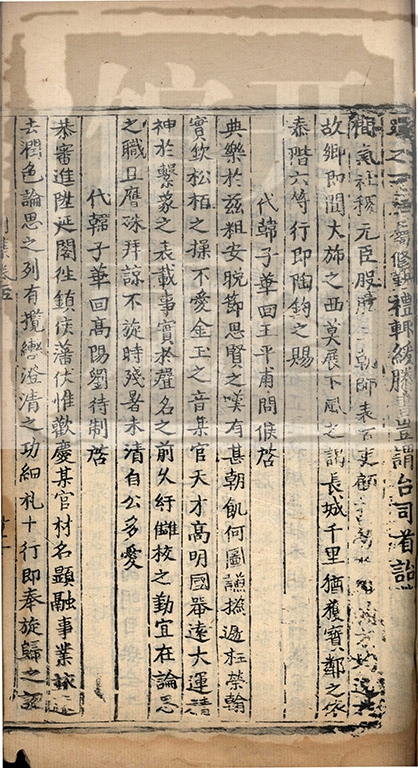 修
禮輒緘縢
台司首
間氣社稷元臣股肱
師表百吏顧
故鄉即閫大旆之西莫展下風之謁長城千里猶獲寶鄰之依
泰階六符行即陶鈞之賜
代韓子華回王平甫問候啓
典樂於茲粗安脫節思賢之嘆有甚朝飢何圖謙撝遜枉榮翰
實欽松柏之操不愛金玉之音某官天才高明國器遠大運精
神於繫象之表載事實於聲名之前久紆讎校之勤宜在論思
之職且膺殊拜諒不旋時殘暑未清自公多愛
代韓子華回高陽劉待制啓
恭審進陞延閣徃鎮侯藩伏惟歡慶某官材名顯融事業
去潤色論思之列有攬轡澄清之功細札十行即奉旋歸之詔
集卷五